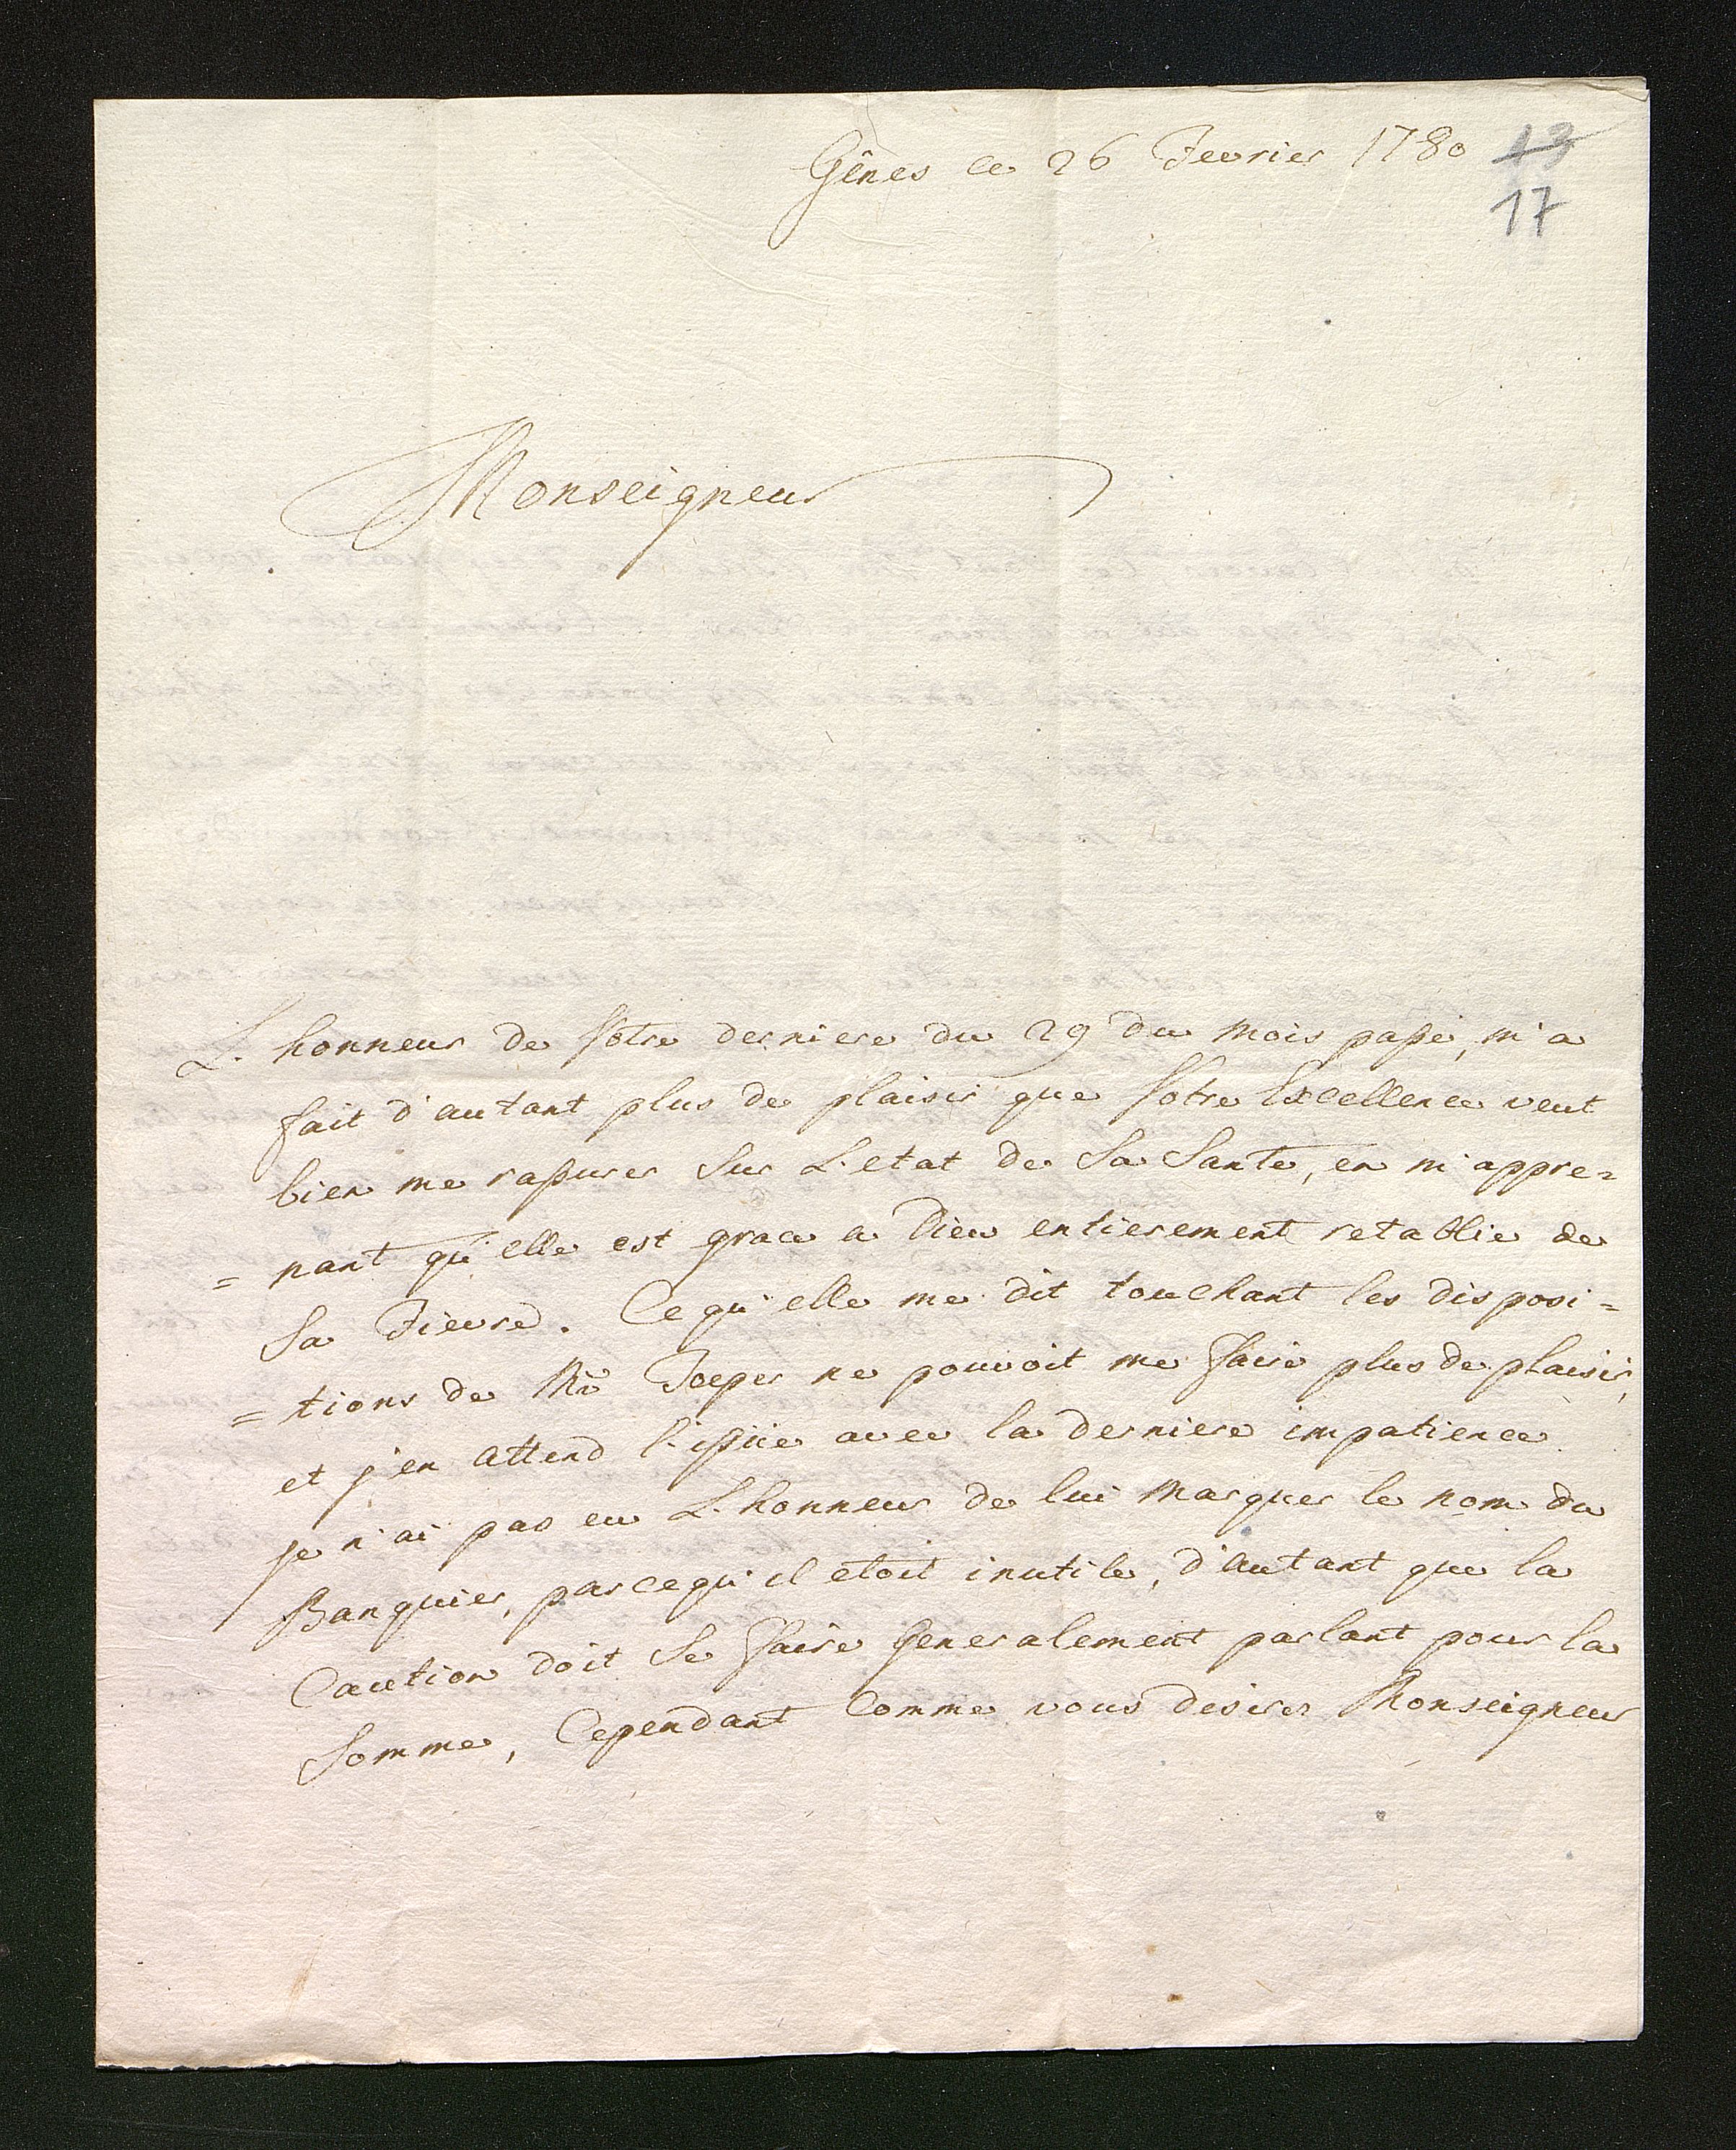 Gênes ce 26 Fevrier 1780
13
17
Monseigneur
L'honneur de Votre derniere du 29 du mois passé, m'a
fait d'autant plus de plaisir que Votre Excellence veut
bien me rassurer Sur L'etat de Sa Santé, en m'appre=
= nant qu'elle est grace a Dieu entierement retablie de
Sa Fievre. Ce qu'elle me dit touchant les disposi=
= tions de Mr Joeper ne pouvoit me faire plus de plaisir,
et j'en attend l'issüe avec la derniere impatience
je n'ai pas eu L'honneur de lui marquer le nom du
Banquier, parcequ'il etoit inutile, d'autant que la
Caution doit Se faire Generalement parlant pour la
Somme, Cependant Comme vous desirez Monseigneur